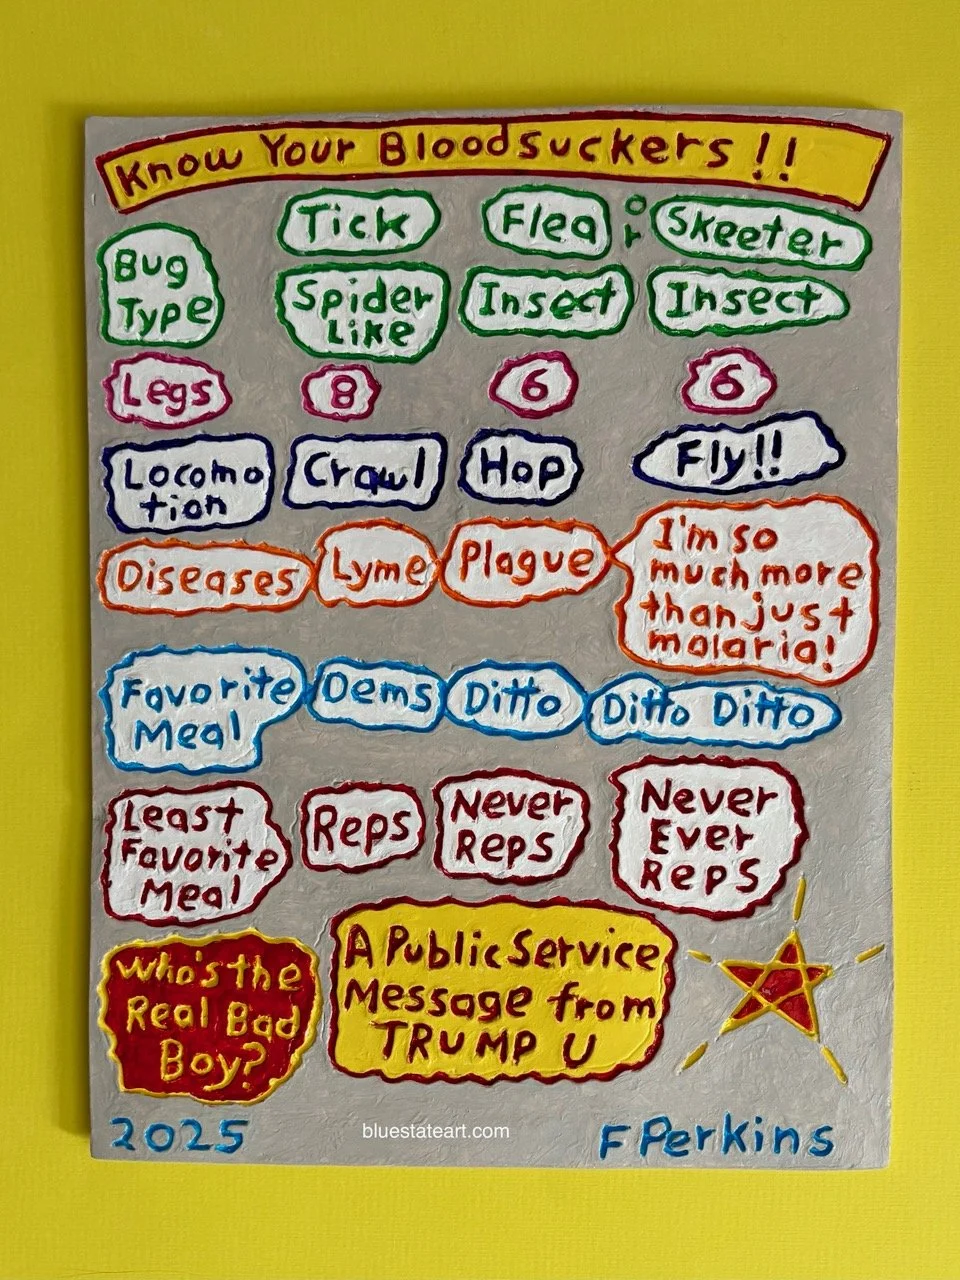 Know Your Bloodsuckers!!
Bug Type
Tick
Flea
or
Skeeter
Spider Like
Insect
Insect
Legs
8
6
6
Locomo
tion
Crawl
Hop
Fly!!
Diseases
Lyme
Plague
I'm so
much more
than just
malaria!
Favorite
Meal
Dems
Ditto
Ditto Ditto
Least
Favorite
Meal
Reps
Never
Reps
Never
Ever
Reps
Who's the
Real Bad
Boy?
A Public Service
Message from
TRUMP U
2025
bluestateart.com
F Perkins